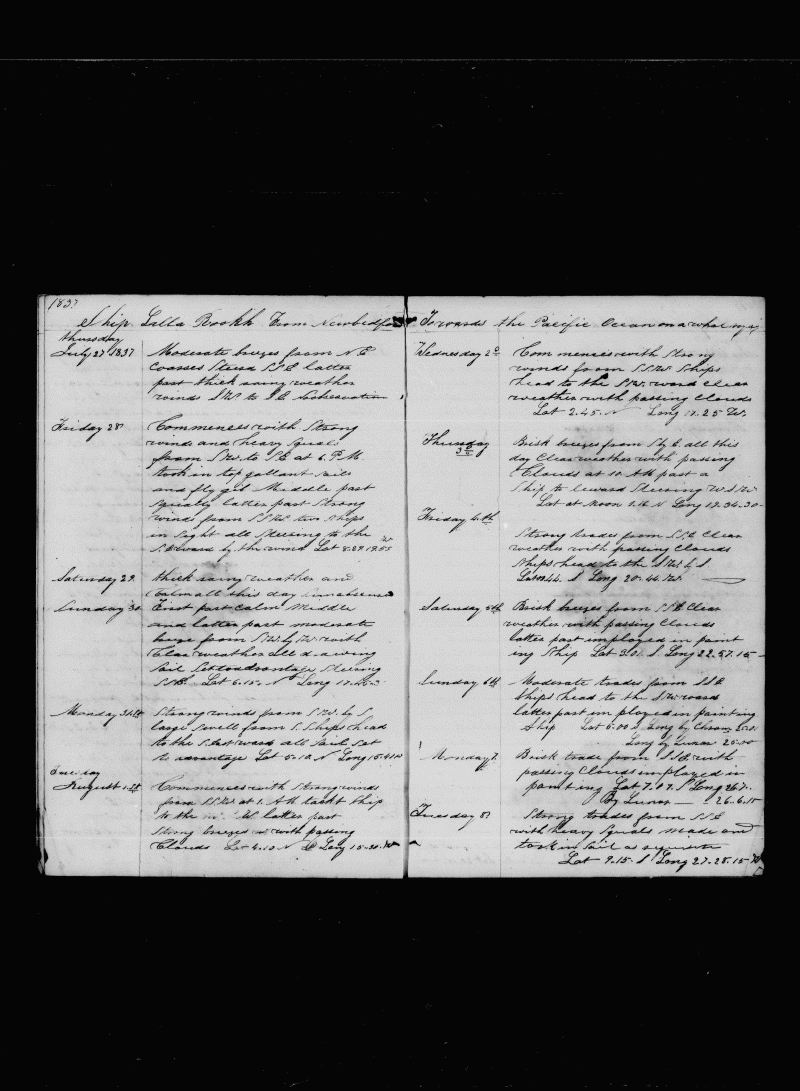 1837
Ship Lalla Rookh From Newbedford Towards the Pacific Ocean on a whaling
Thursday
July 27 1837 Moderate breezes from N E
Coarses Steerd SSE latter
part thick rainy weather
winds SW to S E No observation
Friday 28 Commences with Strong
winds and heavy squals
from SW to SE at 6 PM
took in top gallant sails
and fly gib Middle part
squaly latter part strong
winds from SSW two ships
in sight all Steering to the
by the wind Lat 8.29
Saturday 29 thick rainy weather and
Calm all this day
Sunday 30 First part Calm Middle
and latter part moderate
breeze from SW by W with
Clear weather all drawing
Sail Set to advantage Steering
SSE Lat 6.15 N Long
Monday 31st Strong winds from SW by S
large swell from S. Ships head
to the Eastward all Sail Set
to advantage Lat 5.10 N Long 15.41 W
Tuesday
August 1st Commences with Strong winds
from SSW at 1. AM tackt ship
to the W latter part
Strong breezes with passing
Clouds Lat 4.10 N Long 15.30 W
Wednesday 2d Commences with Strong
winds from SSW Ships
head to the SW.ward Clear
weather with passing Clouds
Lat 2.45 N Long 17.25 W.
Thursday
3d Brisk breezes from S by E all this
day Clear weather with passing
Clouds at 10 AM past a
Ship to leward Steering W.S.W
Lat at Noon 1.16 N Long 19.34.30
Friday 4th
Strong trades from SSE Clear
weather with passing Clouds
Ships head to the SW by S
Lat 0.44. S Long 20.44. W.
Saturday 5th Brisk breezes from SSE Clear
weather with passing Clouds
latter part imployed in paint
ing Ship Lat 3.01 S Long 22.57.15
Sunday 6th Moderate trades from SSE
Ships head to the SW ward
latter part imployed in painting
Ship Lat 5.00 S Long by Chrom
Long by Lunar 25.00
Monday 7 Brisk trade from SSE with
passing Clouds imployed in
painting Lat 7.07 S Long 26.7.
By Lunar 26.6.15
Tuesday 8 Strong trades from SSE
with heavy Squals made and
took in Sail as requisite
Lat 9.15. S Long 27.28.15 W